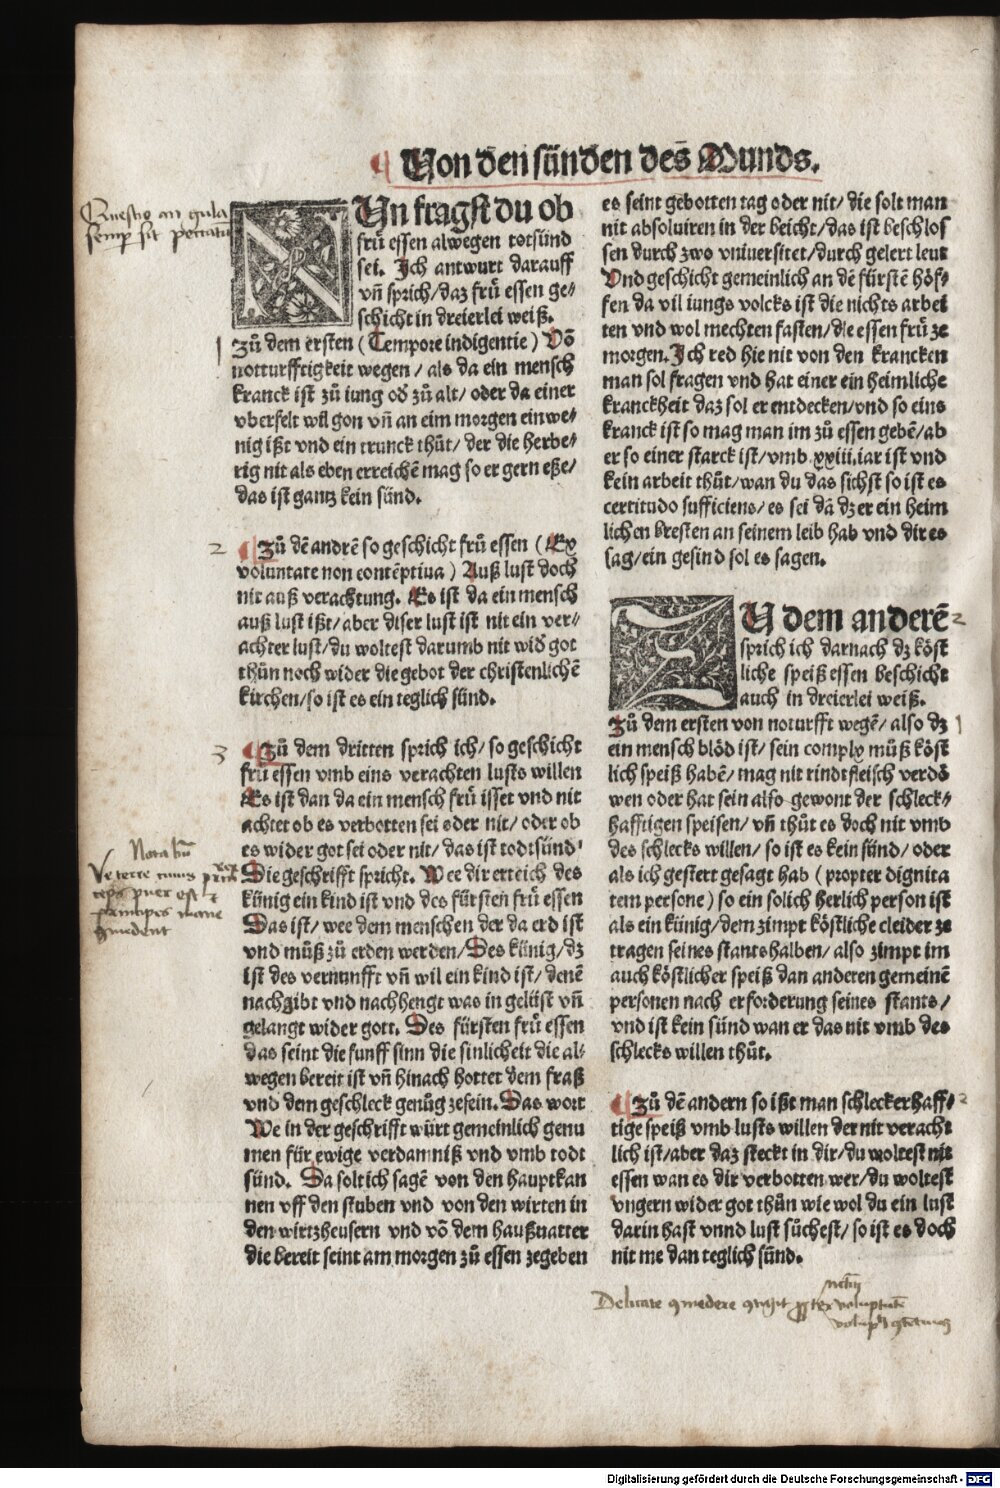 ¶ Von den sünden des Munds.
NUn fragst du ob
frü essen alwegen totsünd
sei. Ich antwurt darauff
vñ sprich/ daz frü essen ge⸗
schicht in dreierlei weiß.
Zů dem ersten (Tempore indigentie) Võ
notturfftigkeit wegen / als da ein mensch
kranck ist zů iung oď zů alt/ oder da einer
vberfelt wil gon vñ an eim morgen ein we⸗
nig ißt vnd ein trunck thůt/ der die herbe⸗
rig nit als eben erreichē mag so er gern eße/
das ist gantz kein sünd.
¶ Zů dē andrē so geschicht frü essen (Ex
voluntate non contēptiua) Auß lust doch
nit auß verachtung. Es ist da ein mensch
auß lust ißt/ aber diser lust ist nit ein ver⸗
achter lust/ du woltest darumb nit wiď got
thůn noch wider die gebot der christenlichē
kirchen/ so ist es ein teglich sünd.
¶ Zů dem dritten sprich ich/ so geschicht
frü essen vmb eins verachten lusts willen
Es ist dan da ein mensch frü isset vnd nit
achtet ob es verbotten sei oder nit/ oder ob
es wider got sei oder nit/ das ist todtsünd
Die geschrifft spricht. Wee dir erteich des
künig ein kind ist vnd des fürsten frü essen
Das ist/ wee dem menschen der da erd ist
vnd můß zů erden werden/ Des künig/ dz
ist des vernunfft vñ wil ein kind ist/ denē
nachgibt vnd nachhengt was in gelüst vñ
gelangt wider gott. Des fürsten frü essen
das seint die funff sinn die sinlicheit die al⸗
wegen bereit ist vñ hinach hottet dem fraß
vnd dem geschleck genůg zesein. Das wort
We in der geschrifft würt gemeinlich genu
men für ewige verdamniß vnd vmb todt
sünd. Da solt ich sagē von den hauptkan
nen vff den stuben vnd von den wirten in
den wirtzheusern vnd võ dem haußuatter
die bereit seint am morgen zů essen zegeben
es seint gebotten tag oder nit/ die solt man
nit absoluiren in der beicht/ das ist beschlos
sen durch zwo vniuersitet/ durch gelert leut
Vnd geschicht gemeinlich an dē fürstē höf⸗
fen da vil iungs volcks ist die nichts arbei
ten vnd wol mechten fasten/ die essen frü ze
morgen. Ich red hie nit von den krancken
man sol fragen vnd hat einer ein heimliche
kranckheit daz sol er entdecken/ vnd so eins
kranck ist so mag man im zů essen gebē/ ab
er so einer starck ist/ vmb xxiii. iar ist vnd
kein arbeit thůt/ wan du das sichst so ist es
certitudo sufficiens/ es sei dā dz er ein heim
lichen bresten an seinem leib hab vnd dir es
sag/ ein gesind sol es sagen.
ZU dem anderē
sprich ich darnach dz köst
liche speiß essen beschicht
auch in dreierlei weiß.
Zů dem ersten von noturfft wegē/ also dz
ein mensch blöd ist/ sein complx můß köst
lich speiß habē/ mag nit rindtfleisch verdö
wen oder hat sein also gewont der schleck⸗
hafftigen speisen/ vñ thůt es doch nit vmb
des schlecks willen/ so ist es kein sünd/ oder
als ich gestert gesagt hab (propter dignita
tem persone) so ein solich herlich person ist
als ein künig/ dem zimpt köstliche cleider ze
tragen seines stants halben/ also zimpt im
auch köstlicher speiß dan anderen gemeinē
personen nach erforderung seines stants/
vnd ist kein sünd wan er das nit vmb des
schlecks willen thůt.
¶ Zů dē andern so ißt man schleckerhaff⸗
tige speiß vmb lusts willen der nit veracht
lich ist/ aber daz steckt in dir/ du woltest nit
essen wan es dir verbotten wer/ du woltest
vngern wider got thůn wie wol du ein lust
darin hast vnnd lust sůchest/ so ist es doch
nit me dan teglich sünd.
Questio an gula
semp sit peccatū
1
2
3
Nota bn̄
2
1
2
Digitalisierung gefördert durch die Deutsche Forschungsgemeinschaft - DFG